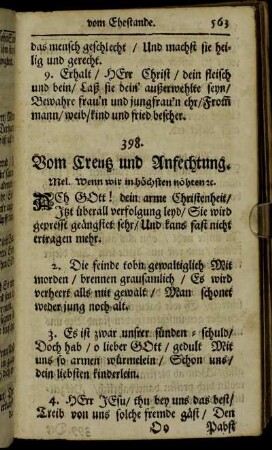 vom Ehestande. 563
das mensch geschlecht / Und machst sie hei-
lig und gerecht.
9. Erhalt / HErr Christ / dein fleisch
und bein / Laß sie dein außerwehlte seyn /
Bewahre frau'n und jungfrau'n ehr / From̃
mann / weib / kind und fried bescher.
398.
Vom Creutz und Anfechtung.
Mel. Wenn wir in höchsten nöhten ꝛc.
ACh GOtt! dein arme Christenheit /
Itzt überall verfolgung leyd / Sie wird
gepresst geängstet sehr / Und kans fast nicht
ertragen mehr.
2. Die feinde tobn gewaltiglich Mit
morden / brennen grausamlich / Es wird
verheert alls mit gewalt / Man schonet
weder jung noch alt.
3. Es ist zwar unsrer sünden-schuld /
Doch hab / o lieber GOtt / gedult Mit
uns so armen würmelein / Schon uns /
dein liebsten kinderlein.
4. HErr JEsu / thu bey uns das best /
Treib von uns solche fremde gäst / Den
Oo Pabst